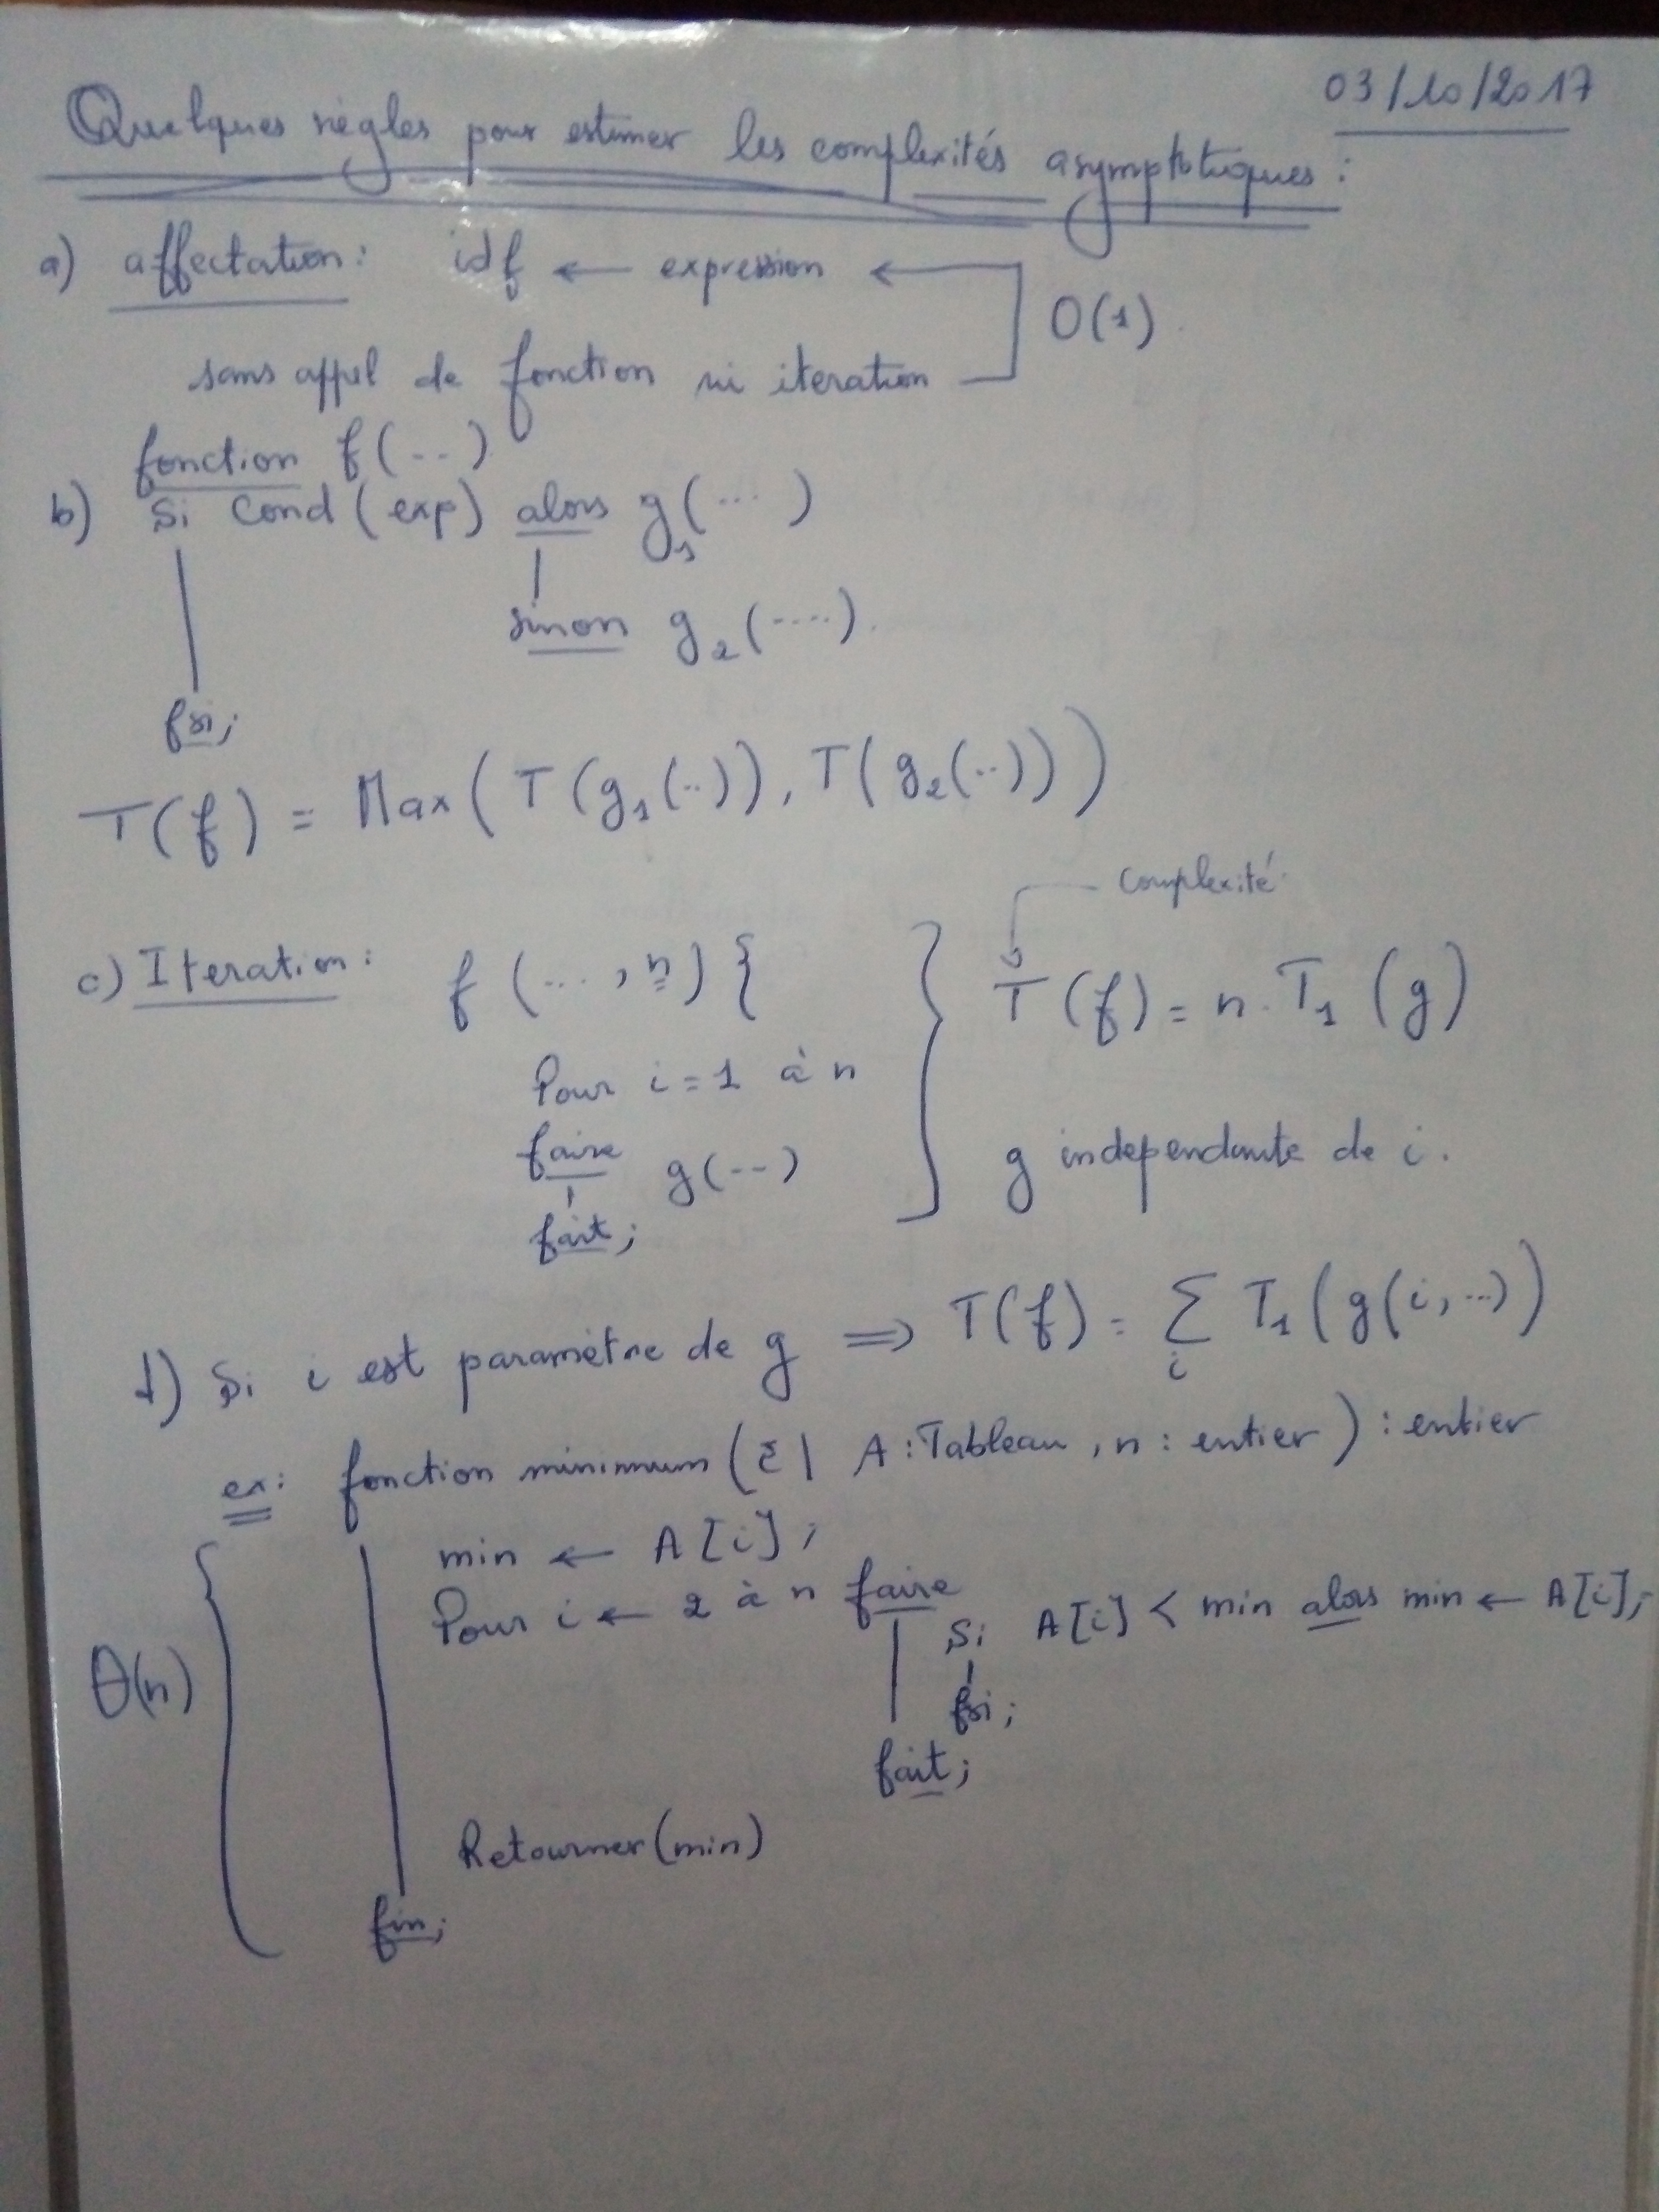 03/10/2017
Quelques règles pour estimer les complexités asymptotiques :
a) affectation : idf ← expression ←
O(1).
sans appel de fonction ni iteration
fonction f(..)
b) Si Cond (exp) alors g₁(...)
sinon g₂(....).
fsi;
T(f) = Max(T(g₁(..)), T(g₂(..)))
complexité
c) Iteration : f(..., n) {
T(f) = n . T₁(g)
Pour i = 1 à n
faire g(--)
g independante de i.
fait;
d) Si i est paramètre de g ⟹ T(f) = Σ T₁(g(i, ...)
i
ex: fonction minimum (E| A : Tableau, n : entier) : entier
min ← A[i];
Pour i ← 2 à n faire
Si A[i] < min alors min ← A[i];
θ(n)
fsi;
fait;
Retourner(min)
fin;